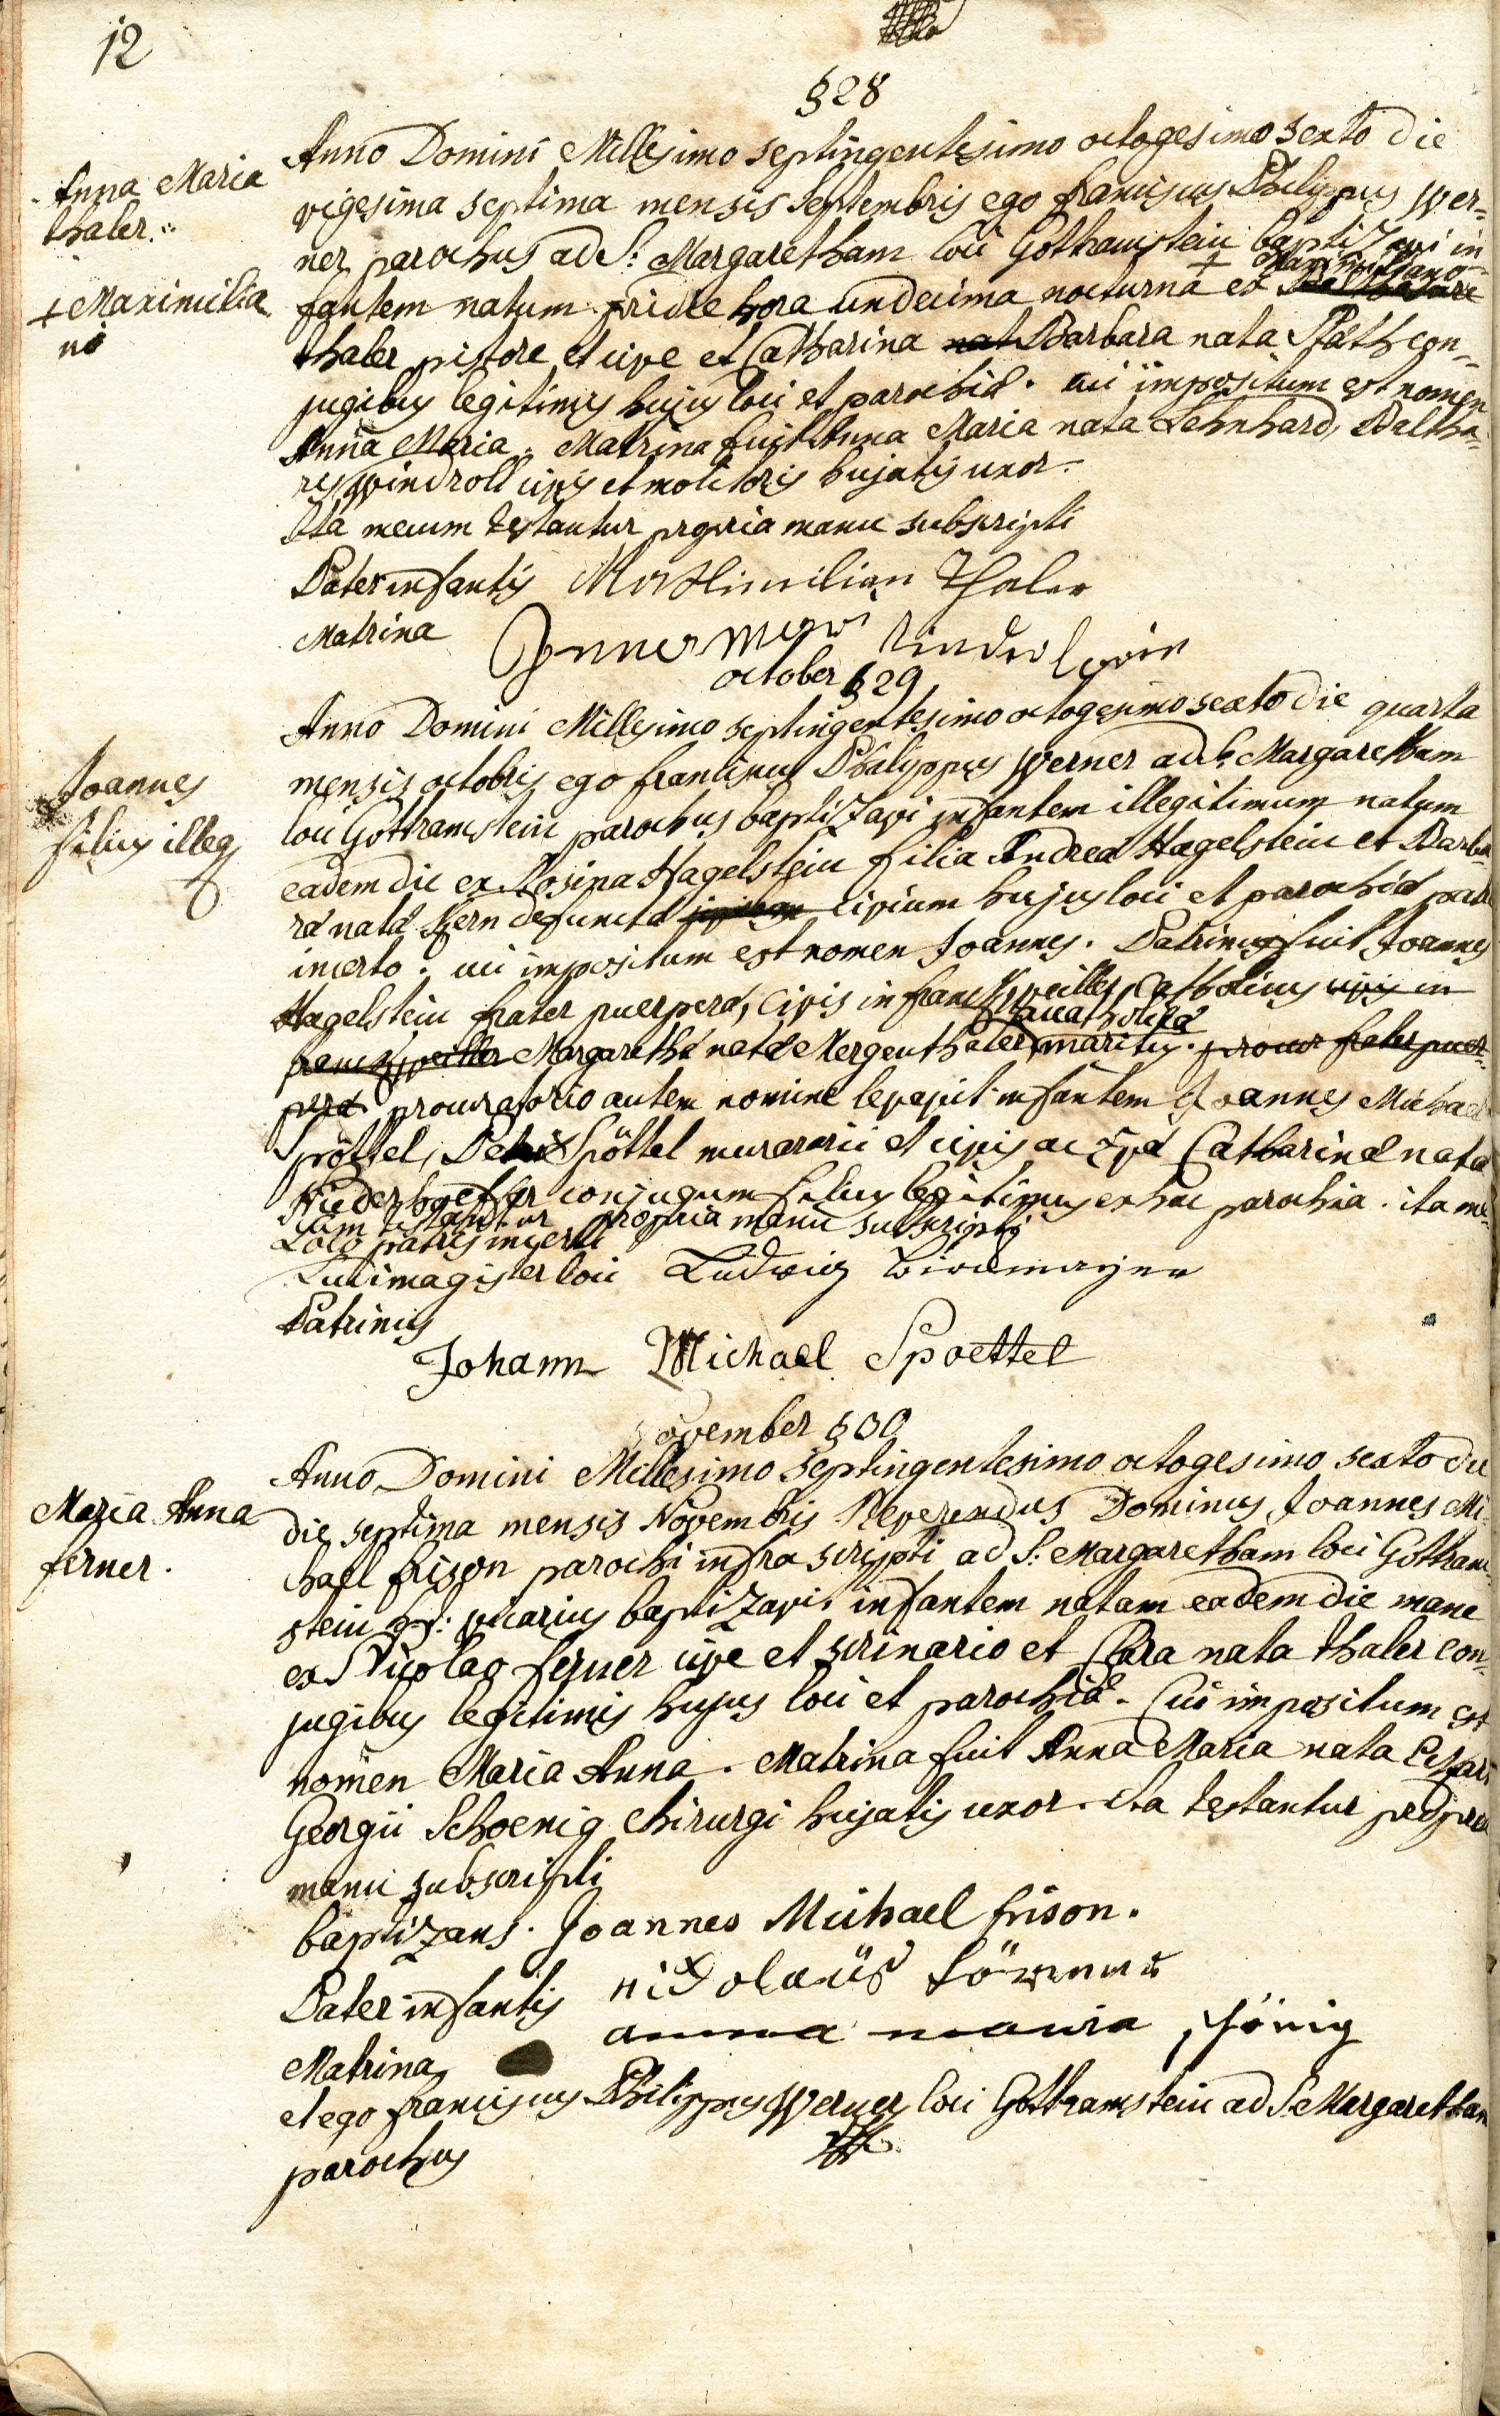 12
§ 28
Anna Maria
thaler.
+ Maximilia
no
Anno Domini Millesimo septingentesimo octogesimo sexto die
vigesima septima mensis Septembris ego franciscus Philippus wer-
ner parochus ad S: Margaretham loci Gothramstein baptizavi in
fantem natum pridie hora undecima nocturna ex + Maximiliano Balthasare
thaler pistore et cive et Catharina nat Barbara nata Path con-
jugibus legitimis hujus loci et parochiæ. cui impositum est nomen
Anna Maria. Matrina fuit Anna Maria nata Lehnhard, Baltha-
ris windroll civis et molitoris hujatis uxor.
Ita mecum testantur propria manu subscripti
Pater infantis Maximilian Thaler
Matrina Anna Maria
october § 29
Joannes
filius illeg
Anno Domini Millesimo septingentesimo octogesimo sexto die quarta
mensis octobris ego franciscus Philippus Werner ad S. Margaretham
loci Gothramstein parochus baptizavi infantem illegitimum natum
eadem die ex Rosina Hagelstein filia Andreæ Hagelstein et Barba
ræ natæ Kern defunctæ civium hujus loci et parochiæ patre
incerto. cui impositum est nomen Joannes. Patrinus fuit Joannes
Hagelstein frater puerperæ, civis in franckweiller, Catholicus civis in
franckweiller Margarethæ natæ Mergenthaler acatholicæ maritus. procur frater puer-
peræ procuratorio autem nomine levavit infantem Joannes Michael
Spöttel, Petri Spöttel murararii et civis ac Evæ Catharinæ nata
Niederhoefer conjugum filius legitimus ex hac parochia. ita me-
cum testantur propria manu subscripti
Loco patris incerti
Ludimagister loci Ludwig
Patrinus
Johann Michael Spoettel
november § 30
Maria Anna
ferner.
Anno Domini Millesimo septingentesimo octogesimo sexto die
die septima mensis Novembris Reverendus Dominus Joannes Mi-
chael frison parochi infra scripti ad S: Margaretham loci Gothram-
stein vicarius baptizavi infantem natam eadem die mane
ex Nicolao ferner cive et scrinario et Clara nata thaler con-
jugibus legitimis hujus loci et parochiæ. Cui impositum est
nomen Maria Anna. Matrina fuit Anna Maria nata
Georgii Schoenig chirurgi hujatis uxor. ita testantur propria
manu subscripti
baptizans. Joannes Michael frison.
Pater infantis nicolaüs
Matrina anna maria schönig
et ego franciscus Philippus Werner loci Gothramstein ad S. Margaretham
parochus